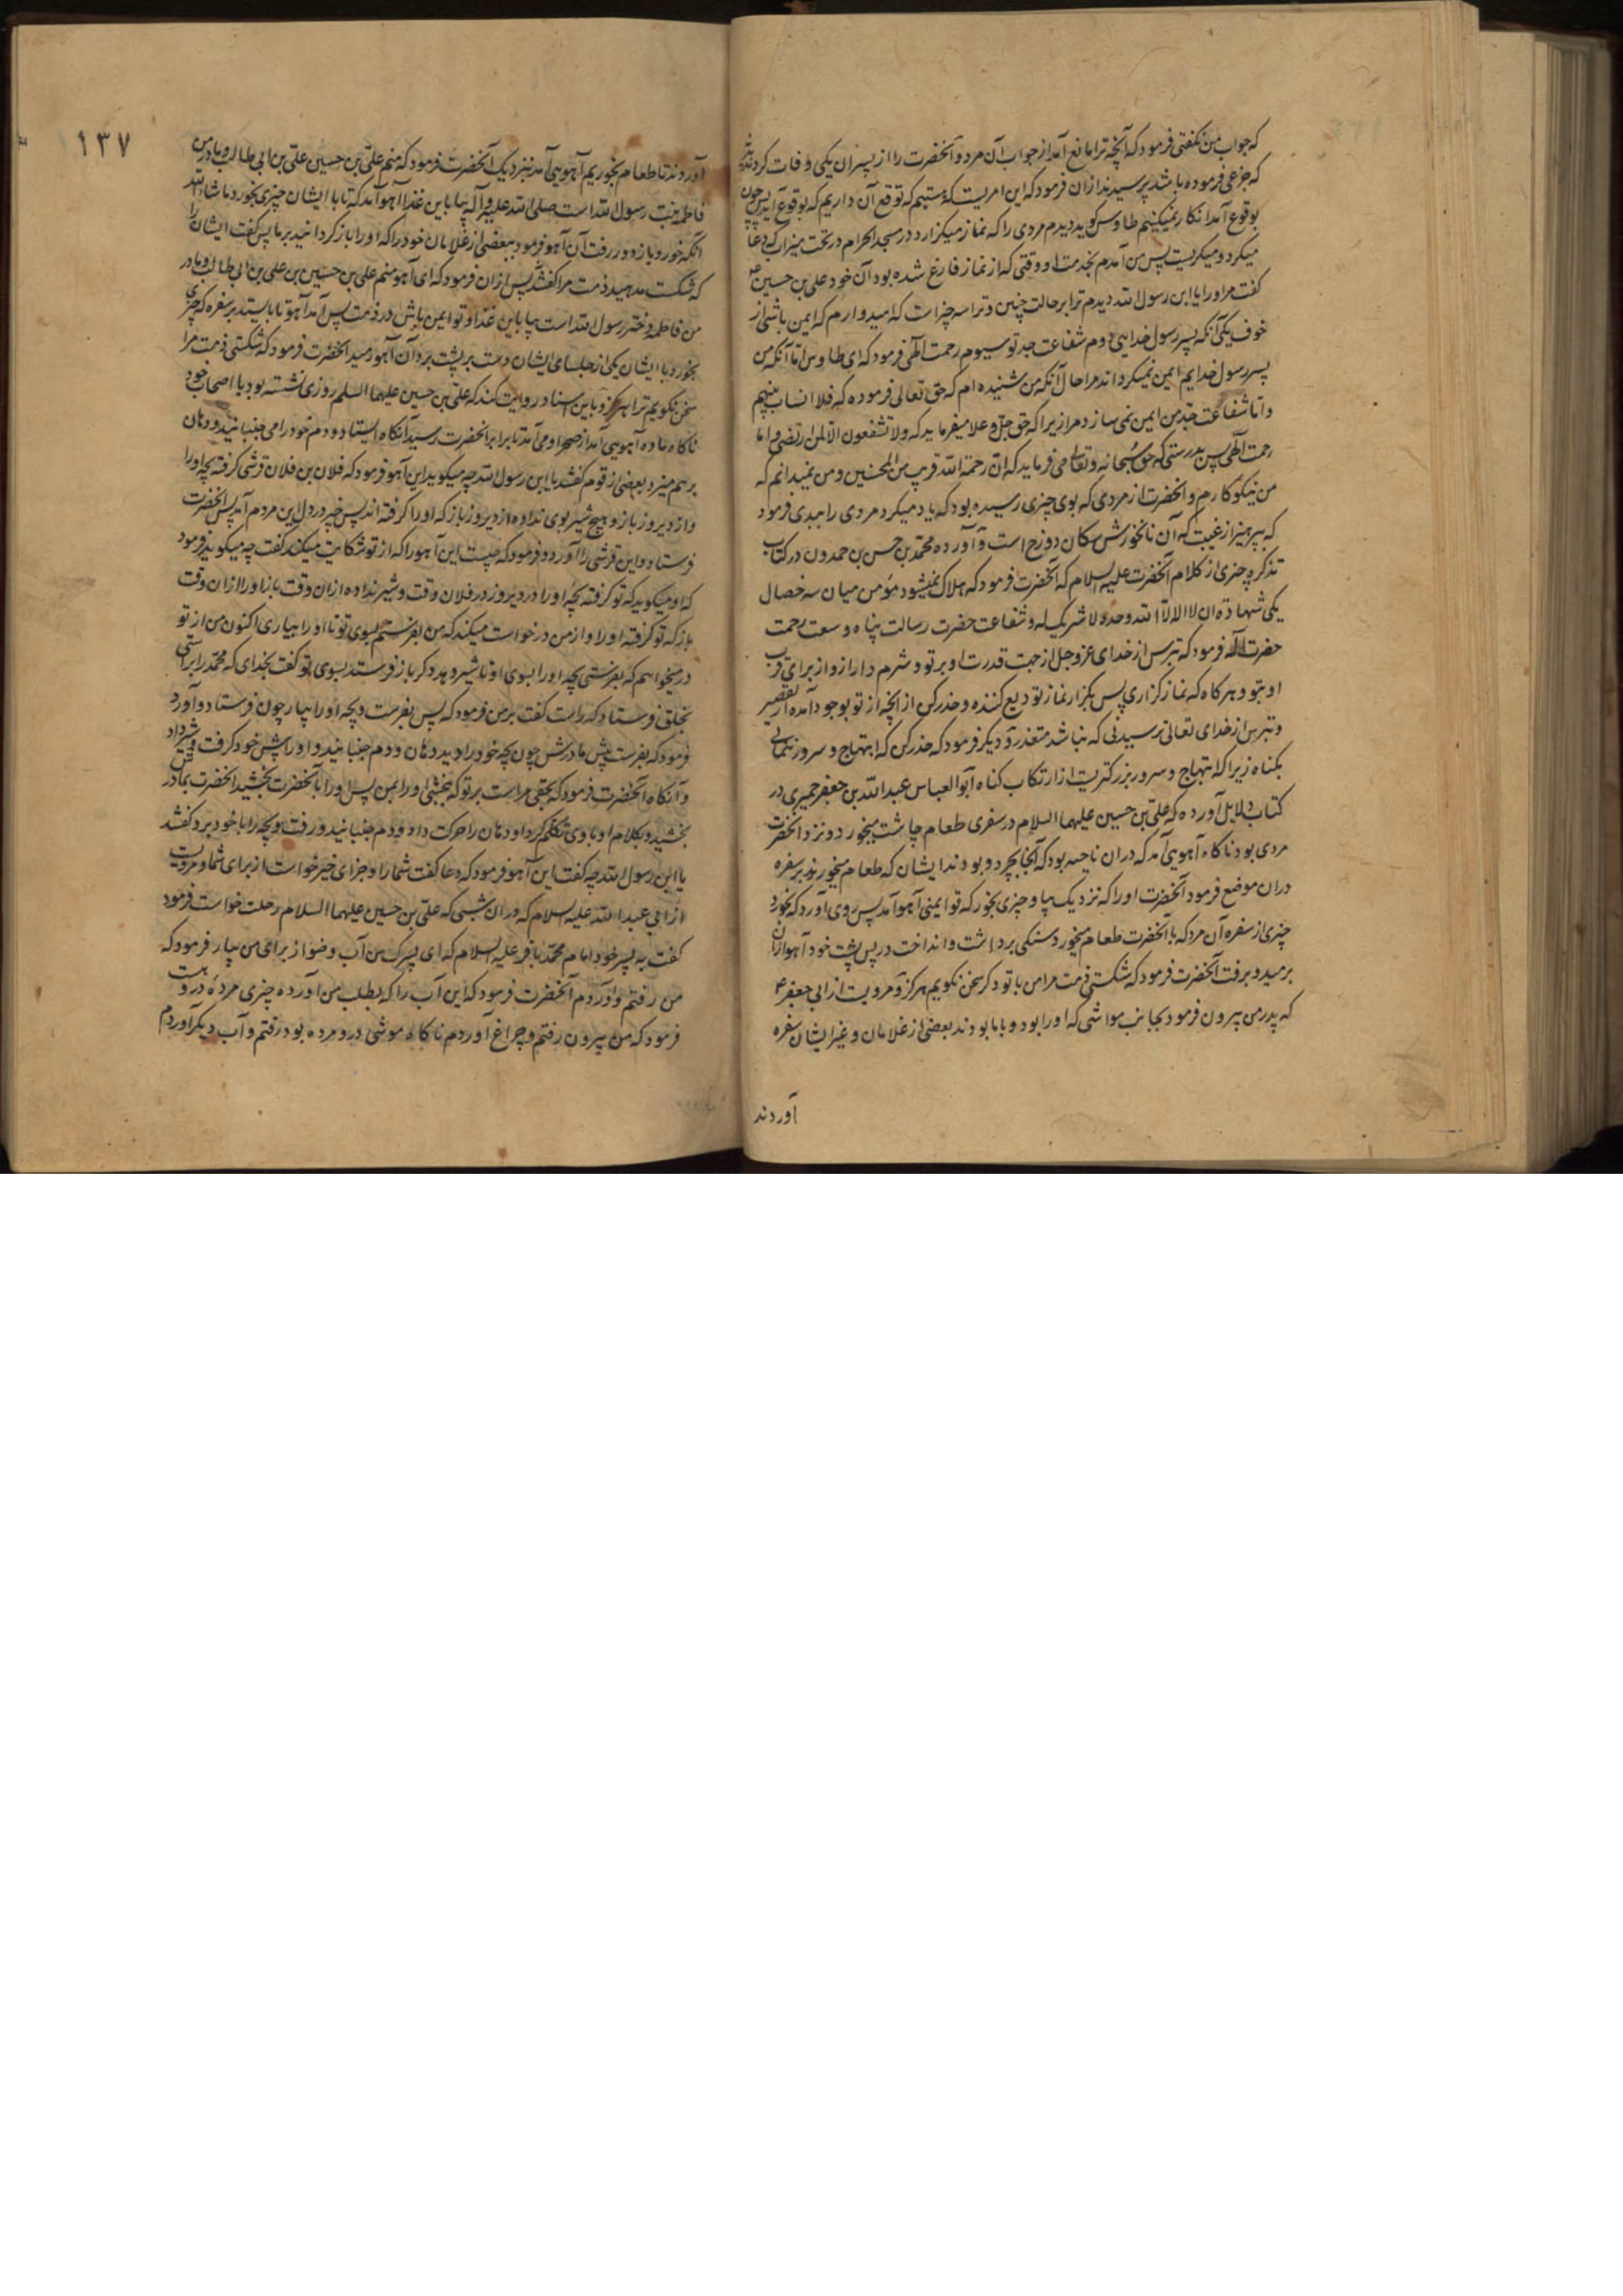 که جواب من نکفتی فرمود که آنچه ترا مانع آمد از جواب آن مرد و آنحضرت را از پسران یکی وفات کرد ندیدند
که جزعی فرموده باشد پرسیدند ازان فرمود که این امریست که مستیم که توقع آن داریم که بوقوع آید پس چون
بوقوع آمد انکار نمیکنیم طاوس کوید دیدم مردی را که نماز میکزارد در مسجد الحرام در تحت میزاب که دعا
میکرد و میکریست پس من آمدم بخدمت او وقتی که از نماز فارغ شده بود آن خود علی بن حسین ع
کفت مر او را یا ابن رسول الله دیدم ترا بر حالت چنین و ترا سه چیز است که امیدوارم که ایمن باشی از
خوف یکی آنکه پسر رسول خدایی دوم شفاعت جد تو سیوم رحمت الهی فرمود که ای طاوس اما آنکه من
پسر رسول خدایم ایمن نمیکرداند مرا حال آنکه من شنیده ام که حق تعالی فرموده که فلا انساب بینهم
و اما شفاعت جد من ایمن نمی سازد مرا زیرا که حق جل و علا میفرماید که ولا تشفعون الا لمن ارتضی و اما
رحمت الهی پس بدرستی که حق سبحانه و تعالی می فرماید که ان رحمة الله قریب من المحسنین و من نمیدانم که
من نیکو کارم و آنحضرت از مردی که بوی چیزی رسیده بود که یاد میکرد مردی را ببدی فرمود
که بپرهیز از غیبت که آن نانخورش سکان دوزخ است و آورده محمد بن حسن بن حمدون در کتاب
تذکره چیزی از کلام آنحضرت علیه السلام که آنحضرت فرمود که هلاک نمیشود مؤمن میان سه خصال
یکی شهادة ان لا اله الا الله وحده لا شریک له و شفاعت حضرت رسالت پناه و سعت رحمت
حضرت اله فرمود که بترس از خدای عز و جل از جهت قدرت او بر تو و شرم دار ازو از برای قرب
او بتو و هر کاه که نماز کزاری پس بکزار نماز تودیع کننده و حذر کن از آنچه از تو بوجود آمده از تقصیر
و بترس از خدای تعالی ترسیدنی که نباشد متعذر و دیکر فرمود که حذر کن که ابتهاج و سرور ننمائی
بکناه زیرا که ابتهاج و سرور بزرکتریست از ارتکاب کناه ابو العباس عبد الله بن جعفر حمیری در
کتاب دلایل آورده که علی بن حسین علیهما السلام در سفری طعام چاشت میخورد و نزد آنحضرت
مردی بود ناکاه آهویی آمد که دران ناحیه بود که آنجا بچرد و بودند ایشان که طعام میخوردند بر سفره
دران موضع فرمود آنحضرت او را که نزدیک بیا و چیزی بخور که تو ایمنی آهو آمد پس روی آورد که بخورد
چیزی از سفره آن مرد که با آنحضرت طعام میخورد سنکی برداشت و انداخت در پس پشت خود آهو ازان
برمید و برفت آنحضرت فرمود که شکستی ذمت مرا من با تو دکر سخن نکویم هرکز و مرویست از ابی جعفر ع
که پدر من بیرون فرمود بجانب مواشی که او را بود و با ما بودند بعضی از غلامان و غیر ایشان سفره
آوردند
۱۳۷
آوردند تا طعام بخوریم آهویی آمد بنزدیک آنحضرت فرمود که منم علی بن حسین علی بن ابی طالب و مادر من
فاطمه بنت رسول الله است صلی الله علیه و آله بیا باین غذا آهو آمد که تا با ایشان چیزی بخورد ما شاء الله
آنکه خورد باز دور رفت آن آهو فرمود ببعضی از غلامان خود را که او را باز کردانید بر ما پس کفت ایشان را
که شکست مدهید ذمت مرا کفتند پس ازان فرمود که ای آهو منم علی بن حسین بن علی بن ابی طالب و مادر
من فاطمه دختر رسول الله است بیا باین غذا و تو ایمن باش در ذمت پس آمد آهو تا بایستد بر سفره که چیزی
بخورد با ایشان یکی از جلسای ایشان دست بر پشت برد آن آهو رمید آنحضرت فرمود که شکستی ذمت مرا
سخن نکویم ترا هرکز و باین اسناد روایت کند که علی بن حسین علیهما السلم روزی نشسته بود با اصحاب خود
ناکاه ماده آهویی آمد از صحرا و می آمد تا برابر آنحضرت رسید آنکاه ایستاد و دم خود را می جنبانید و دهان
برهم میزد بعضی از قوم کفتند یا ابن رسول الله چه میکوید این آهو فرمود که فلان بن فلان قرشی کرفته بچه او را
و از دیروز باز و هیچ شیر بوی نداده از دیروز باز که او را کرفته اند پس خبر در دل این مردم آمد پس آنحضرت
فرستاد و این قرشی را آورد و فرمود که چیست این آهو را که از تو شکایت میکند کفت چه میکوید فرمود
که او میکوید که تو کرفته بچه او را در دیروز در فلان وقت و شیر نداده ازان وقت باز او را ازان وقت
باز که تو کرفته او را و از من درخواست میکند که من بفرستم بسوی تو تا او را بیاری اکنون من از تو
در میخواهم که بفرستی بچه او را بسوی او تا شیر دهد و دکر باز فرستد بسوی تو کفت بخدای که محمد را براستی
بخلق فرستاد که راست کفت بر من فرمود که پس بفرست و بچه او را بیار چون فرستاد و آورد
فرمود که بفرست پیش مادرش چون بچه خود را دید دهان و دم جنبانید و او را پیش خود کرفت و شیر داد
و آنکاه آنحضرت فرمود که بحقی مراست بر تو که بخشی او را بمن پس او را بآنحضرت بخشید آنحضرت بمادرش
بخشید و بکلام او با وی تکلم کرد او دهان را حرکت داد و دم جنبانید و رفت و بچه را با خود برد کفتند
یا ابن رسول الله چه کفت این آهو فرمود که دعا کفت شما را و جزای خیر خواست از برای شما و مرویست
از ابی عبد الله علیه السلام که دران شبی که علی بن حسین علیهما السلام رحلت خواست فرمود
کفت به پسر خود امام محمد باقر علیه السلام که ای پسرک من آب وضو از برای من بیار فرمود که
من رفتم و آوردم آنحضرت فرمود که این آب را که بطلب من آورده چیزی مرده درو هست
فرمود که من بیرون رفتم و چراغ آوردم ناکاه موشی درو مرده بود رفتم و آب دیکر آوردم